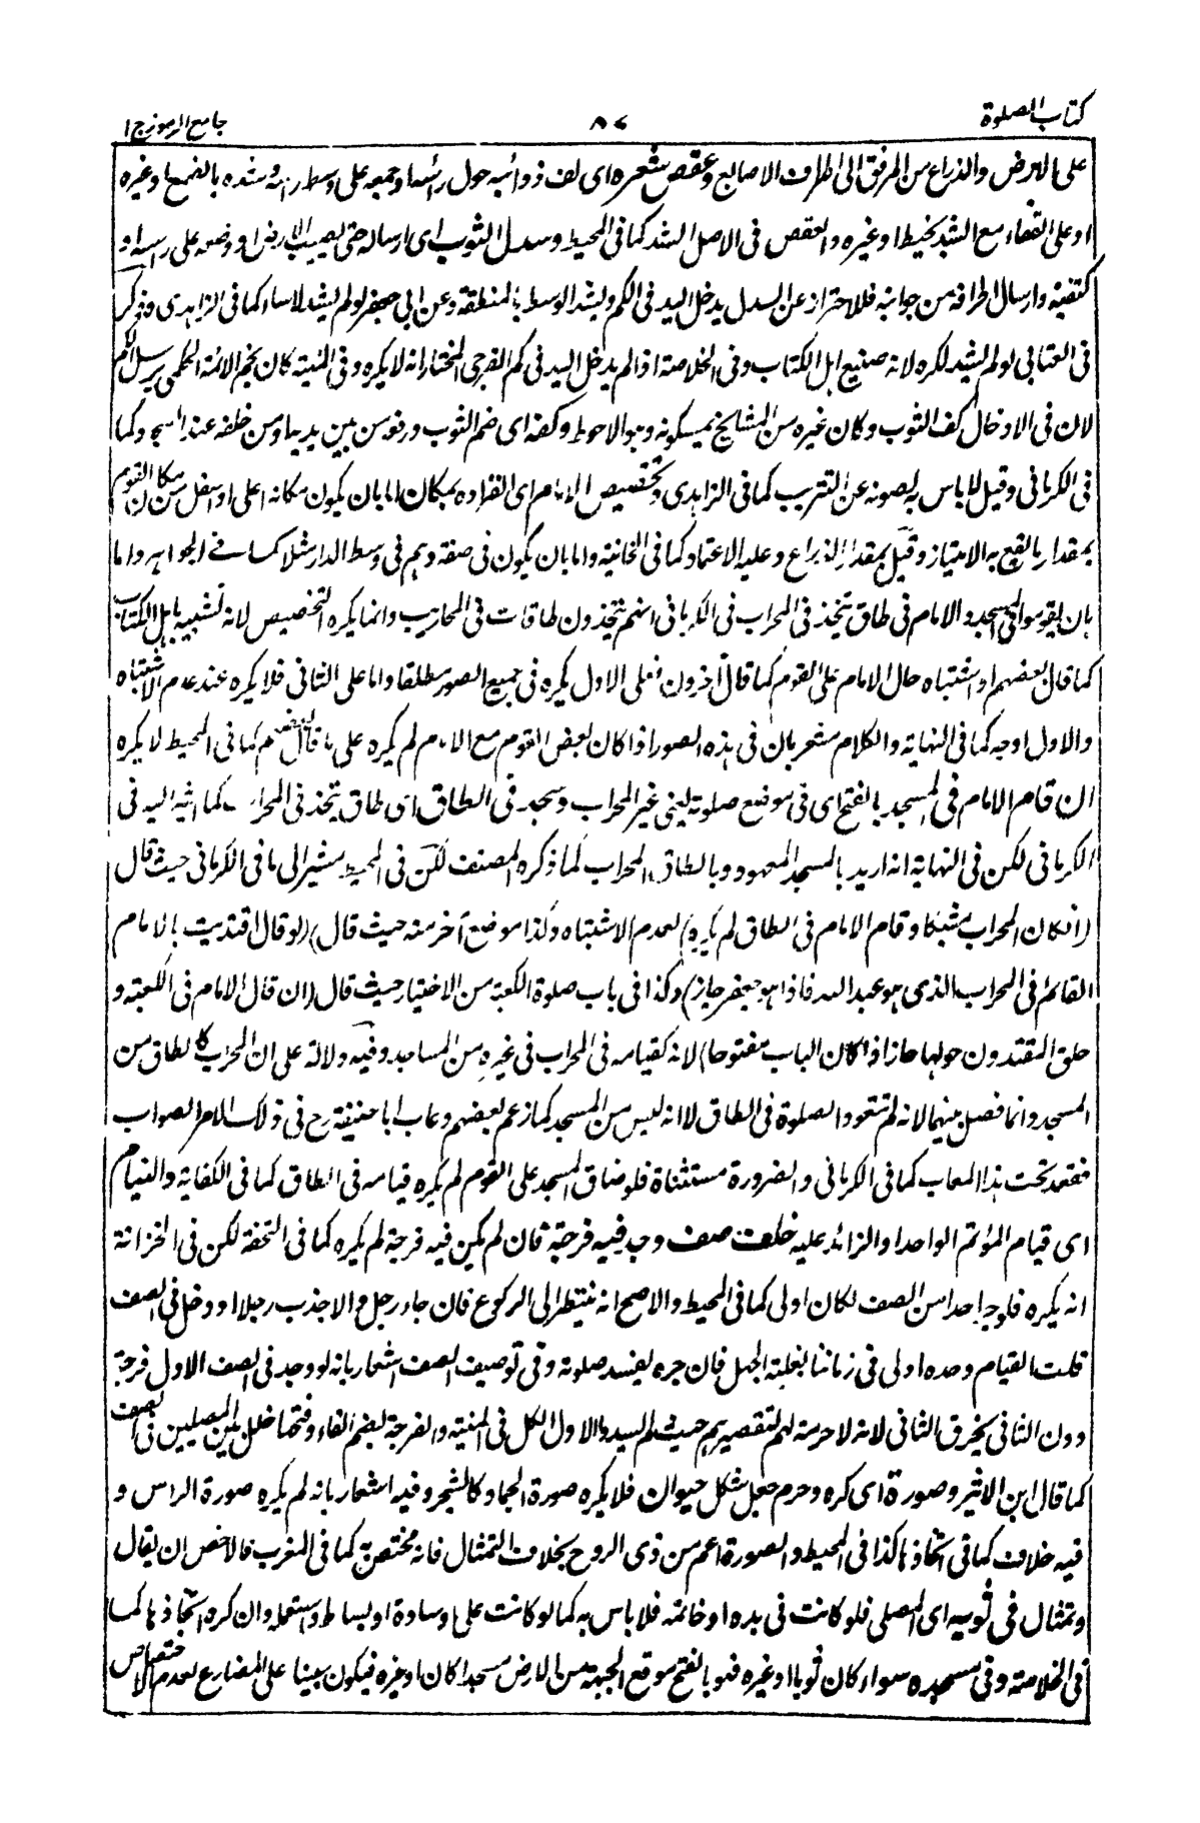 كتاب الصلوة
٨٧
جامع الرموز ج ١
على الارض والذراع من المرفق الى اطراف الاصابع وعقص شعره اى لف ذوائبه حول رأسه او جمعه على وسط رأسه وشده بالصمغ او غيره
او على القفاء مع الشد بخيط او غيره والعقص فى الاصل الشد كما فى المحيط وسدل الثوب اى ارساله حتى يصيب الارض او وضعه على رأسه او
كتفيه وارسال اطرافه من جوانبه فللاحتراز عن السدل يدخل اليد فى الكم ويشد الوسط بالمنطقة وعن ابى جعفر لو لم يشد لاساء كما فى الزاهدى وذكر
فى العتابى لو لم يشد لكره لانه صنيع اهل الكتاب وفى الخلاصة اذا لم يدخل اليد فى كم الفرجى المختار انه لا يكره وفى المنية كان نجم الائمة الحكمى يرسل الكم
لان فى الادخال كف الثوب وكان غيره من المشايخ يمسكونه وهو الاحوط وكفه اى ضم الثوب ورفعه من بين يديه او من خلفه عند السجود كما
فى الكرمانى وقيل لا باس به لصونه عن التتريب كما فى الزاهدى وتخصيص الامام اى انفراده بمكان اما بان يكون مكانه اعلى او اسفل من مكان القوم
بمقدار ما يقع به الامتياز وقيل بمقدار الذراع وعليه الاعتماد كما فى الخانية واما بان يكون فى صفة وهم فى وسط الدار مثلا كما فى الجواهر واما
بان يقوموا فى المسجد والامام فى طاق يتخذ فى المحراب فى الكرمانى انهم يتخذون طاقات فى المحاريب وانما يكره التخصيص لانه تشبيه باهل الكتاب
كما قال بعضهم او اشتباه حال الامام على القوم كما قال آخرون فعلى الاول يكره فى جميع الصور مطلقا واما على الثانى فلا يكره عند عدم الاشتباه
والاول اوجه كما فى النهاية والكلام مشعر بان فى هذه الصور اذا كان بعض القوم مع الامام لم يكره على ما قال بعضهم كما فى المحيط لا يكره
ان قام الامام فى المسجد بالفتح اى فى موضع صلوته يعنى غير المحراب وسجد فى الطاق اى طاق يتخذ فى المحراب كما اشير اليه فى
الكرمانى لكن فى النهاية انه اريد بالمسجد المعهود وبالطاق المحراب كما ذكره المصنف لكن فى المحيط مشير الى ما فى الكرمانى حيث قال
(ان كان المحراب مشبكا وقام الامام فى الطاق لم يكره) لعدم الاشتباه وكذا موضع آخر منه حيث قال (لو قال اقتديت بالامام
القائم فى المحراب الذى هو عبد الله فاذا هو جعفر جاز) وكذا فى باب صلوة الكعبة من الاختيار حيث قال (ان قال الامام فى الكعبة و
حلق المقتدون حولها جاز اذا كان الباب مفتوحا) لانه كقيامه فى المحراب فى غيره من المساجد وفيه دلالة على ان المحراب كالطاق من
المسجد وانما فصل بينهما لانه لم تتعود الصلوة فى الطاق لا انه ليس من المسجد كما زعم بعضهم وعاب ابا حنيفة رح فى ذلك الامر الصواب
فقعد تحت هذا المعاب كما فى الكرمانى والضرورة مستثناة فلو ضاق المسجد على القوم لم يكره قيامه فى الطاق كما فى الكفاية والقيام
اى قيام المؤتم الواحد او الزائد عليه خلف صف وجد فيه فرجة فان لم يكن فيه فرجة لم يكره كما فى التحفة لكن فى الخزانة
انه يكره فلو جر احدا من الصف لكان اولى كما فى المحيط والاصح انه ينتظر الى الركوع فان جاء رجل والا جذب رجلا او دخل فى الصف
قلت القيام وحده اولى فى زماننا لغلبة الجهل فان جره يفسد صلوته وفى توصيف الصف اشعار بانه لو وجد فى الصف الاول فرجة
دون الثانى يخرق الثانى لانه لا حرمة لهم لتقصيرهم حيث لم يسدوا الاول الكل فى المنية والفرجة بضم الفاء وفتحها خلل بين المصليين فى الصف
كما قال ابن الاثير وصورة اى كره وحرم جعل شكل حيوان فلا يكره صورة الجماد كالشجر وفيه اشعار بانه لم يكره صورة الراس و
فيه خلاف كما فى اتخاذها كذا فى المحيط والصورة اعم من ذى الروح بخلاف التمثال فانه مختص به كما فى المغرب فالاخص ان يقال
وتمثال فى ثوبيه اى المصلى فلو كانت فى يده او خاتمه فلا باس به كما لو كانت على وسادة او بساط وستعمله وان كره اتخاذها كما
فى الخلاصة وفى مسجده سواء كان ثوبا او غيره فهو بالفتح موقع الجبهة من الارض مسجدا كان او غيره فيكون مبينا على المضارع لعدم الاختصاص